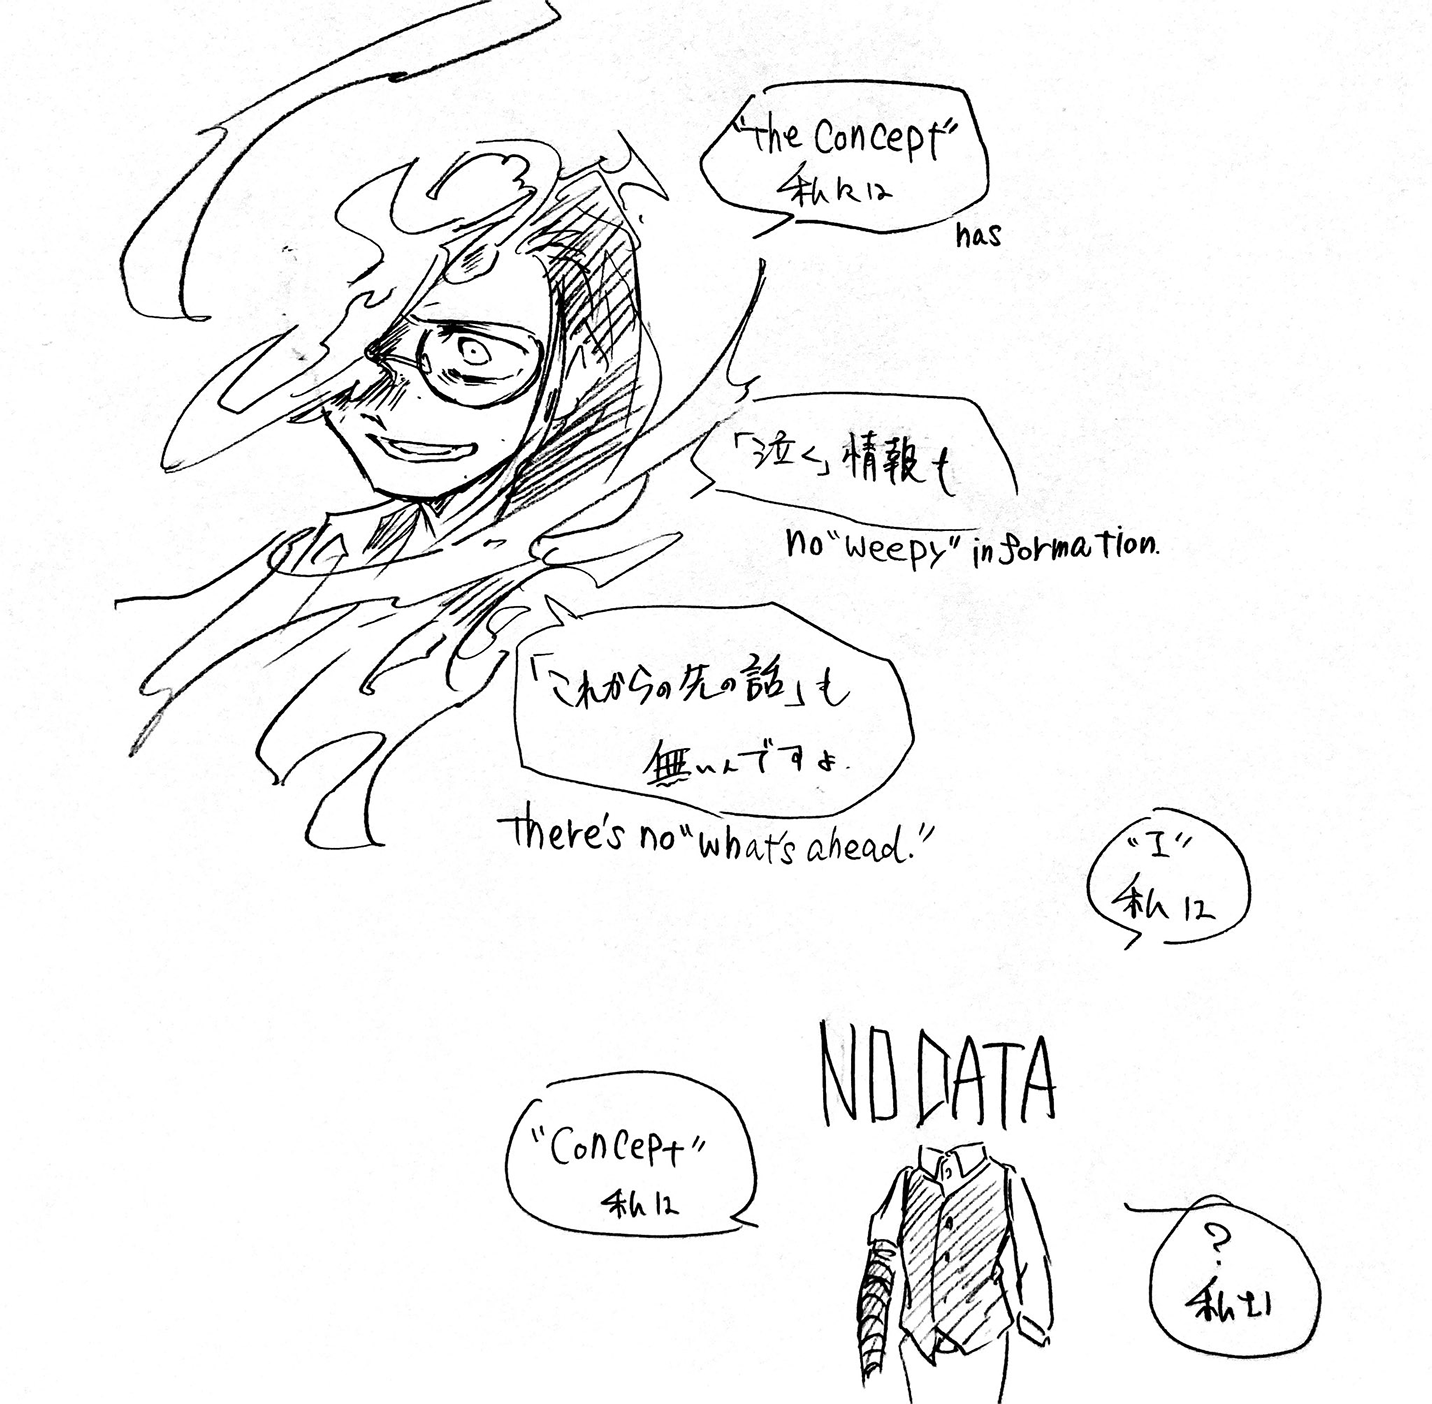 "The Concept"
私には
has
「泣く」情報も
no "weepy" information.
「これからの先の話」も
無いんですよ.
There's no "what's ahead."
"I"
私は
NO DATA
"Concept"
私は
?
私は